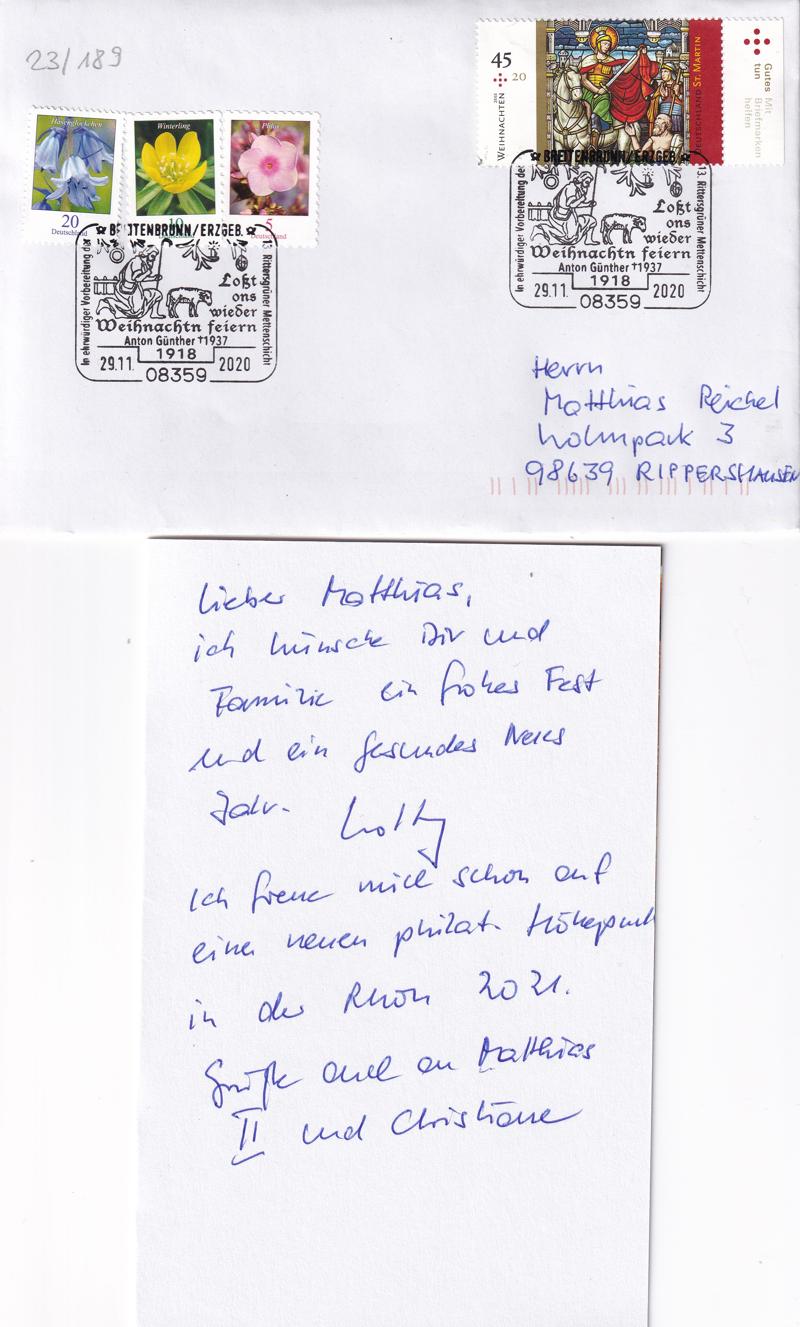 23/189
Hasenglöckchen
20
Deutschland
Winterling
10
Phlox
5
Deutschland
45
20
WEIHNACHTEN
DEUTSCHLAND ST. MARTIN
Gutes tun
Mit Briefmarken helfen
BREITENBRUNN/ERZGEB.
In ehrwürdiger Vorbereitung der
13. Rittersgrüner Mettenschicht
Loßt
ons
wieder
Weihnachtn feiern
Anton Günther †1937
1918
29.11. 2020
08359
BREITENBRUNN/ERZGEB.
In ehrwürdiger Vorbereitung der
13. Rittersgrüner Mettenschicht
Loßt
ons
wieder
Weihnachtn feiern
Anton Günther †1937
1918
29.11. 2020
08359
Herrn
Matthias Reichel
Wohnpark 3
98639 RIPPERSHAUSEN
Lieber Matthias,
ich wünsche Dir und
Familie ein frohes Fest
und ein gesundes Neues
Jahr.
Ich freue mich schon auf
einen neuen philat. Höhepunkt
in der Rhön 2021.
Grüße auch an Matthias
II und Christiane